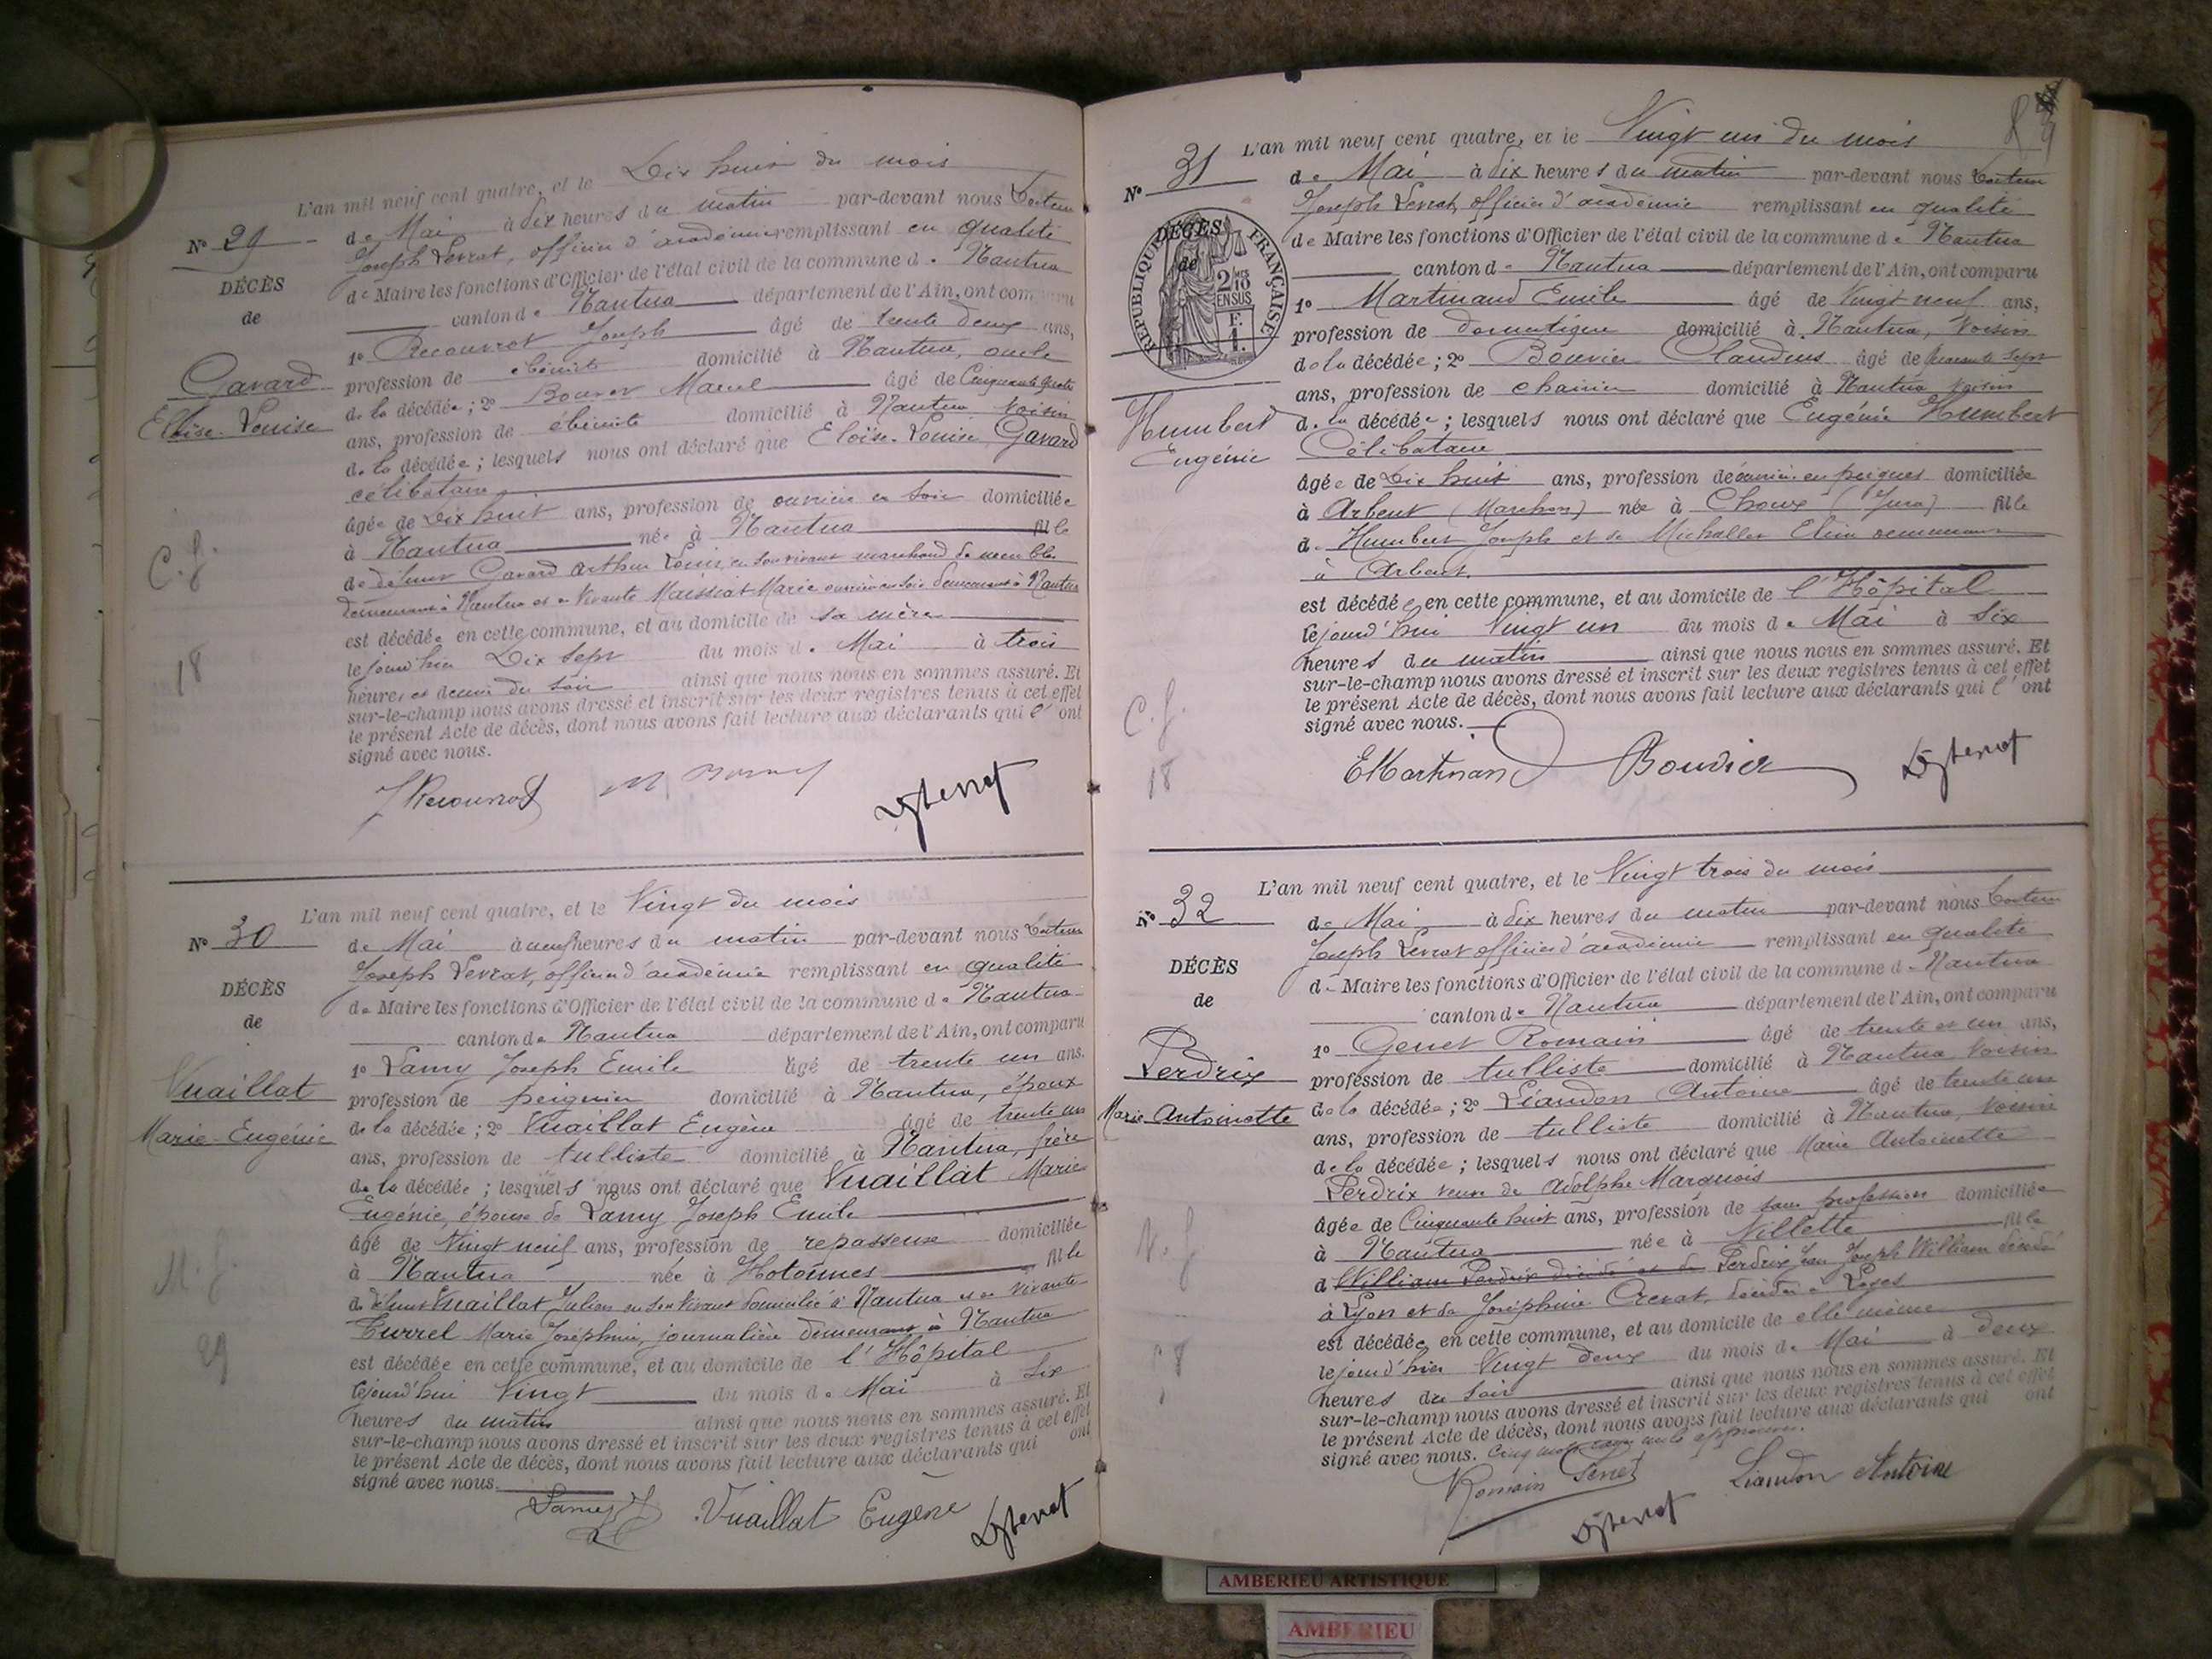 L'an mil neuf cent quatre, et le Dix huit du mois
N° 29
de Mai à dix heures du matin par-devant nous Docteur
Joseph Levrat, officier d'académie remplissant en qualité
de Maire les fonctions d'Officier de l'état civil de la commune de Nantua
canton de Nantua département de l'Ain, ont comparu
DÉCÈS
de
Gavard
Eloïse-Louise
1° Recouvrot Joseph âgé de trente deux ans,
profession de ébéniste domicilié à Nantua, oncle
de la décédée; 2° Marcel âgé de Cinquante quatre
ans, profession de ébéniste domicilié à Nantua voisin
de la décédée; lesquels nous ont déclaré que Eloïse-Louise Gavard
célibataire
âgée de Dix huit ans, profession de ouvrière en soie domiciliée
à Nantua née à Nantua fille
de défunt Gavard Arthur Louis, en son vivant marchand de meubles
demeurant à Nantua et de vivante Maissiat Marie ouvrière en soie demeurant à Nantua
est décédée en cette commune, et au domicile de sa mère
le jour d'hier Dix sept du mois de Mai à trois
heures et demie du soir ainsi que nous nous en sommes assuré. Et
sur-le-champ nous avons dressé et inscrit sur les deux registres tenus à cet effet
le présent Acte de décès, dont nous avons fait lecture aux déclarants qui l'ont
signé avec nous.
C.f.
18
J Recouvrot
L'an mil neuf cent quatre, et le Vingt du mois
N° 30
de Mai à neuf heures du matin par-devant nous Docteur
Joseph Levrat, officier d'académie remplissant en qualité
de Maire les fonctions d'Officier de l'état civil de la commune de Nantua
canton de Nantua département de l'Ain, ont comparu
DÉCÈS
de
Vuaillat
Marie-Eugénie
1° Lamy Joseph Emile âgé de trente un ans.
profession de peignier domicilié à Nantua, époux
de la décédée; 2° Vuaillat Eugène âgé de trente un
ans, profession de tulliste domicilié à Nantua, frère
de la décédée; lesquels nous ont déclaré que Vuaillat Marie
Eugénie, épouse de Lamy Joseph Emile
âgé de Vingt neuf ans, profession de repasseuse domiciliée
à Nantua née à Hotonnes fille
de défunt Vuaillat Julien en son vivant domicilié à Nantua et de vivante
Burrel Marie Joséphine, journalière demeurant à Nantua
est décédée en cette commune, et au domicile de l'Hôpital
le jourd'hui Vingt du mois de Mai à six
heures du matin ainsi que nous nous en sommes assuré. Et
sur-le-champ nous avons dressé et inscrit sur les deux registres tenus à cet effet
le présent Acte de décès, dont nous avons fait lecture aux déclarants qui ont
signé avec nous.
M.f.
29
Vuaillat Eugène
L'an mil neuf cent quatre, et le Vingt un du mois
N° 31
de Mai à dix heures du matin par-devant nous Docteur
Joseph Levrat, officier d'académie remplissant en qualité
de Maire les fonctions d'Officier de l'état civil de la commune de Nantua
canton de Nantua département de l'Ain, ont comparu
DÉCÈS
de
RÉPUBLIQUE FRANÇAISE
2/10 EN SUS
F. 1.
Humbert
Eugénie
1° Martinand Emile âgé de Vingt neuf ans,
profession de domestique domicilié à Nantua, voisin
de la décédée; 2° Bouvier Claudius âgé de quarante sept
ans, profession de chainier domicilié à Nantua voisin
de la décédée; lesquels nous ont déclaré que Eugénie Humbert
Célibataire
âgée de Dix huit ans, profession de ouvrière en peignes domiciliée
à Arbent (Marchon) née à Choux (Jura) fille
de Humbert Joseph et de Michallet Elisa demeurant
à Arbent.
est décédée en cette commune, et au domicile de l'Hôpital
le jourd'hui Vingt un du mois de Mai à six
heures du matin ainsi que nous nous en sommes assuré. Et
sur-le-champ nous avons dressé et inscrit sur les deux registres tenus à cet effet
le présent Acte de décès, dont nous avons fait lecture aux déclarants qui l'ont
signé avec nous.
C.f.
18
EMartinand Bouvier
L'an mil neuf cent quatre, et le Vingt trois du mois
N° 32
de Mai à dix heures du matin par-devant nous Docteur
Joseph Levrat officier d'académie remplissant en qualité
de Maire les fonctions d'Officier de l'état civil de la commune de Nantua
canton de Nantua département de l'Ain, ont comparu
DÉCÈS
de
Perdrix
Marie Antoinette
1° Genet Romain âgé de trente et un ans,
profession de tulliste domicilié à Nantua voisin
de la décédée; 2° Liandon Antoine âgé de trente un
ans, profession de tulliste domicilié à Nantua, voisin
de la décédée; lesquels nous ont déclaré que Marie Antoinette
Perdrix veuve de Adolphe Marquois
âgée de Cinquante huit ans, profession de sans profession domiciliée
à Nantua née à Villette fille
d William Perdrix décédé et de Perdrix Jean Joseph William décédé
à Lyon et de Joséphine Crevat, décédée à Loyes
est décédée en cette commune, et au domicile de elle même
le jour d'hier Vingt deux du mois de Mai à deux
heures du soir ainsi que nous nous en sommes assuré. Et
sur-le-champ nous avons dressé et inscrit sur les deux registres tenus à cet effet
le présent Acte de décès, dont nous avons fait lecture aux déclarants qui ont
signé avec nous. Cinq mots rayés nuls approuvés.
V.f.
58
Romain Genet Liandon Antoine
AMBERIEU ARTISTIQUE
AMBERIEU